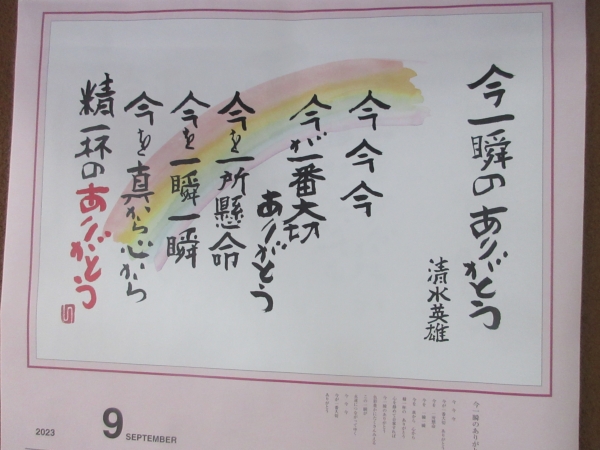 今一瞬のありがとう
清水英雄
今今今
今が一番大切
ありがとう
今を一所懸命
今を一瞬一瞬
今を真から心から
精一杯のありがとう
2023
9
SEPTEMBER
今一瞬のありが